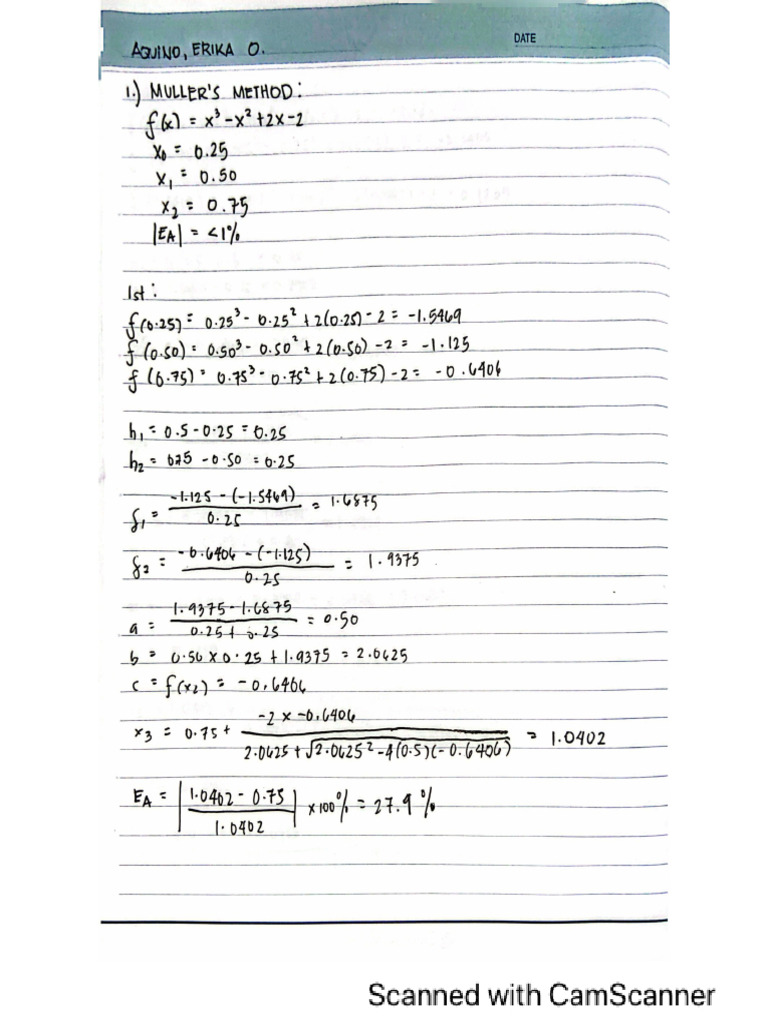 AQUINO, ERIKA O.
DATE
1.) MULLER'S METHOD:
f(x) = x³ - x² + 2x - 2
x₀ = 0.25
x₁ = 0.50
x₂ = 0.75
|EA| = <1%
1st:
f(0.25) = 0.25³ - 0.25² + 2(0.25) - 2 = -1.5469
f(0.50) = 0.50³ - 0.50² + 2(0.50) - 2 = -1.125
f(0.75) = 0.75³ - 0.75² + 2(0.75) - 2 = -0.6406
h₁ = 0.5 - 0.25 = 0.25
h₂ = 075 - 0.50 = 0.25
δ₁ = -1.125 - (-1.5469) / 0.25 = 1.6875
δ₂ = -0.6406 - (-1.125) / 0.25 = 1.9375
a = 1.9375 - 1.6875 / 0.25 + 0.25 = 0.50
b = 0.50 x 0.25 + 1.9375 = 2.0625
c = f(x₂) = -0.6406
x₃ = 0.75 + -2 x -0.6406 / 2.0625 + √2.0625² - 4(0.5)(-0.6406) = 1.0402
EA = |1.0402 - 0.75 / 1.0402| x 100% = 27.9%
Scanned with CamScanner